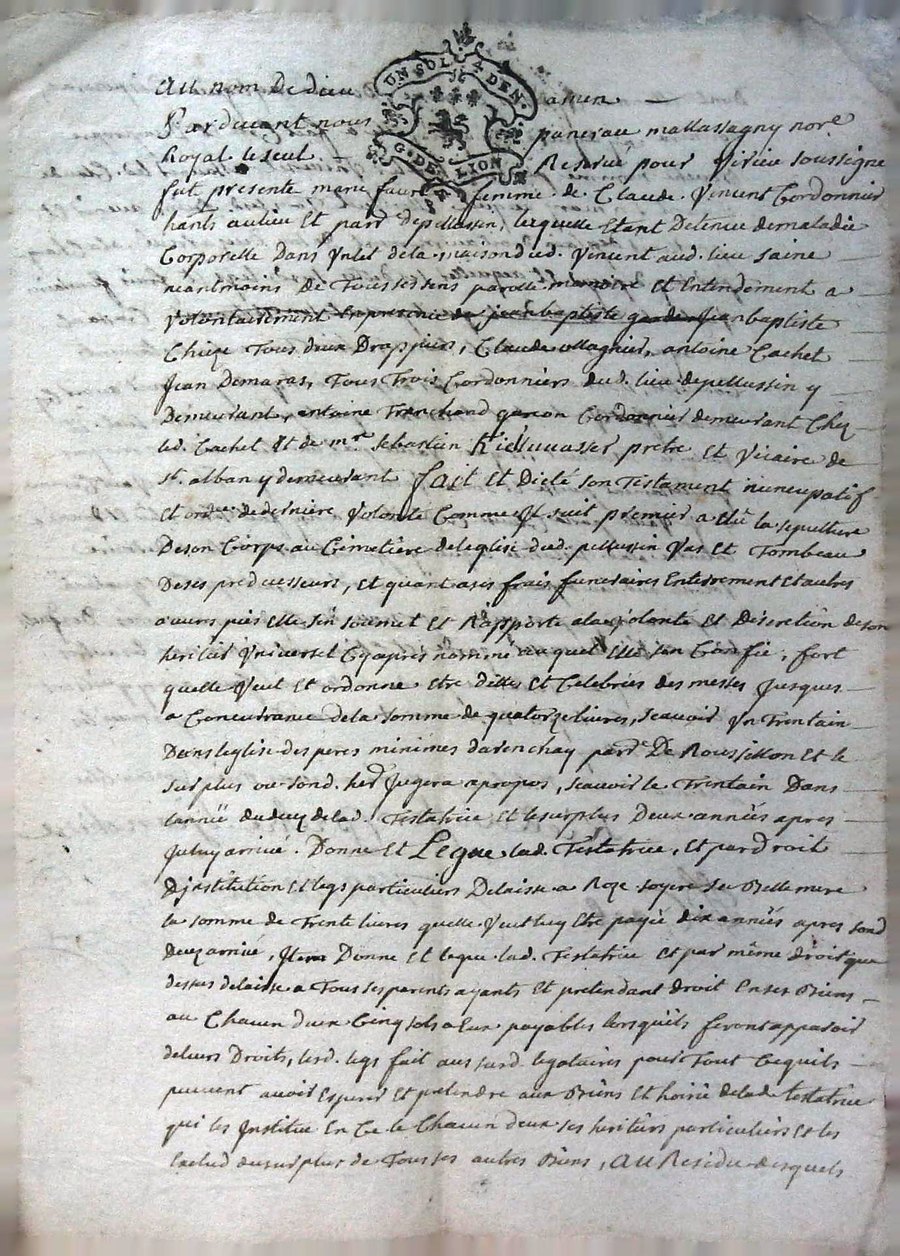 UN SOL 4 DEN.
G. DE LION
Au nom De dieu amen
Pardevant nous pancrace mallassagny nore.
Royal le seul Reservé pour Virieu soussigné
fut presente marie faure femme de Claude Vincent Cordonnier
hants au lieu Et parr. depellussin, laquelle Etant Detenue demaladie
Corporelle Dans Un lit dela maison dud. Vincent aud. lieu saine
neantmoins De Tous ses sens parolle memoire Et Entendement a
Volontairement En presence de jean baptiste jean baptiste
Chieze Tous deux Drappiers, Claude Magnier, antoine Cachet
Jean Demaras, Tous Trois Cordonniers dud. lieu depellussin y
Demeurant, antoine Trenchand garcon Cordonnier demeurant Chez
led. Cachet Et de mre. sebastien pretre Et Vicaire de
st. alban y demeurant fait Et Dicté son Testament nuncupatif
Et ordce. de derniere Volonté Comme Il suit premier a Elû la sepulture
De son Corps au Cimetiere deleglise dud. pellussin Vas Et Tombeau
De ses predecesseurs, Et quant a ses frais funeraires Enterrement Et autres
œuvres pies Elle s'en soumet Et Rapporte ala Volonté Et Discretion de son
heritier Universel Cy apres nommé auquel Elle s'en Confie, fort
quelle Veut Et ordonne Etre Dittes Et Celebrées des messes Jusques
a Concurrance dela somme de quatorze livres, scavoir Un Trentain
Dans leglise des peres minimes daronchay parr. De Roussillon Et le
surplus ou sond. her. Jugera apropos, scavoir le Trentain Dans
lannée du decez delad. Testatrice Et le surplus Deux années apres
Jceluy arrivé. Donne Et Legue lad. Testatrice, Et par droit
D'jnstitution Et legs particuliers Delaisse a Roze soyere sa Belle mere
la somme de Trente livres quelle Veut luy Etre payée dix années apres sond
decez arrivé, Item Donne Et legue lad. Testatrice Et par même droit que
dessus delaisse a Tous ses parents ayants Et pretendant droit En ses Biens
au Chacun deux Cinq sols a Eux payables lorsquils feront apparoir
deleurs Droits, lesd. legs fait aus susd. legataires pour Tout Cequils
peuvent avoir Esperer Et pretendre aux Biens Et hoirie delad. testatrice
qui les Institue En Ce le Chacun deux ses heritiers particuliers Et les
Exclud du surplus de Tous ses autres Biens, Au Residu desquels